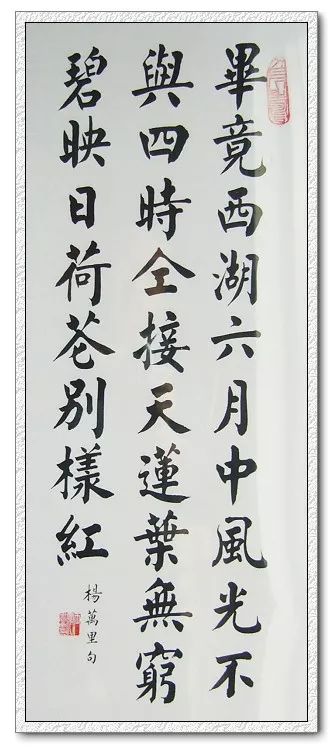 畢竟西湖六月中風光不
與四時仝接天蓮葉無窮
碧映日荷花別樣紅
楊萬里句